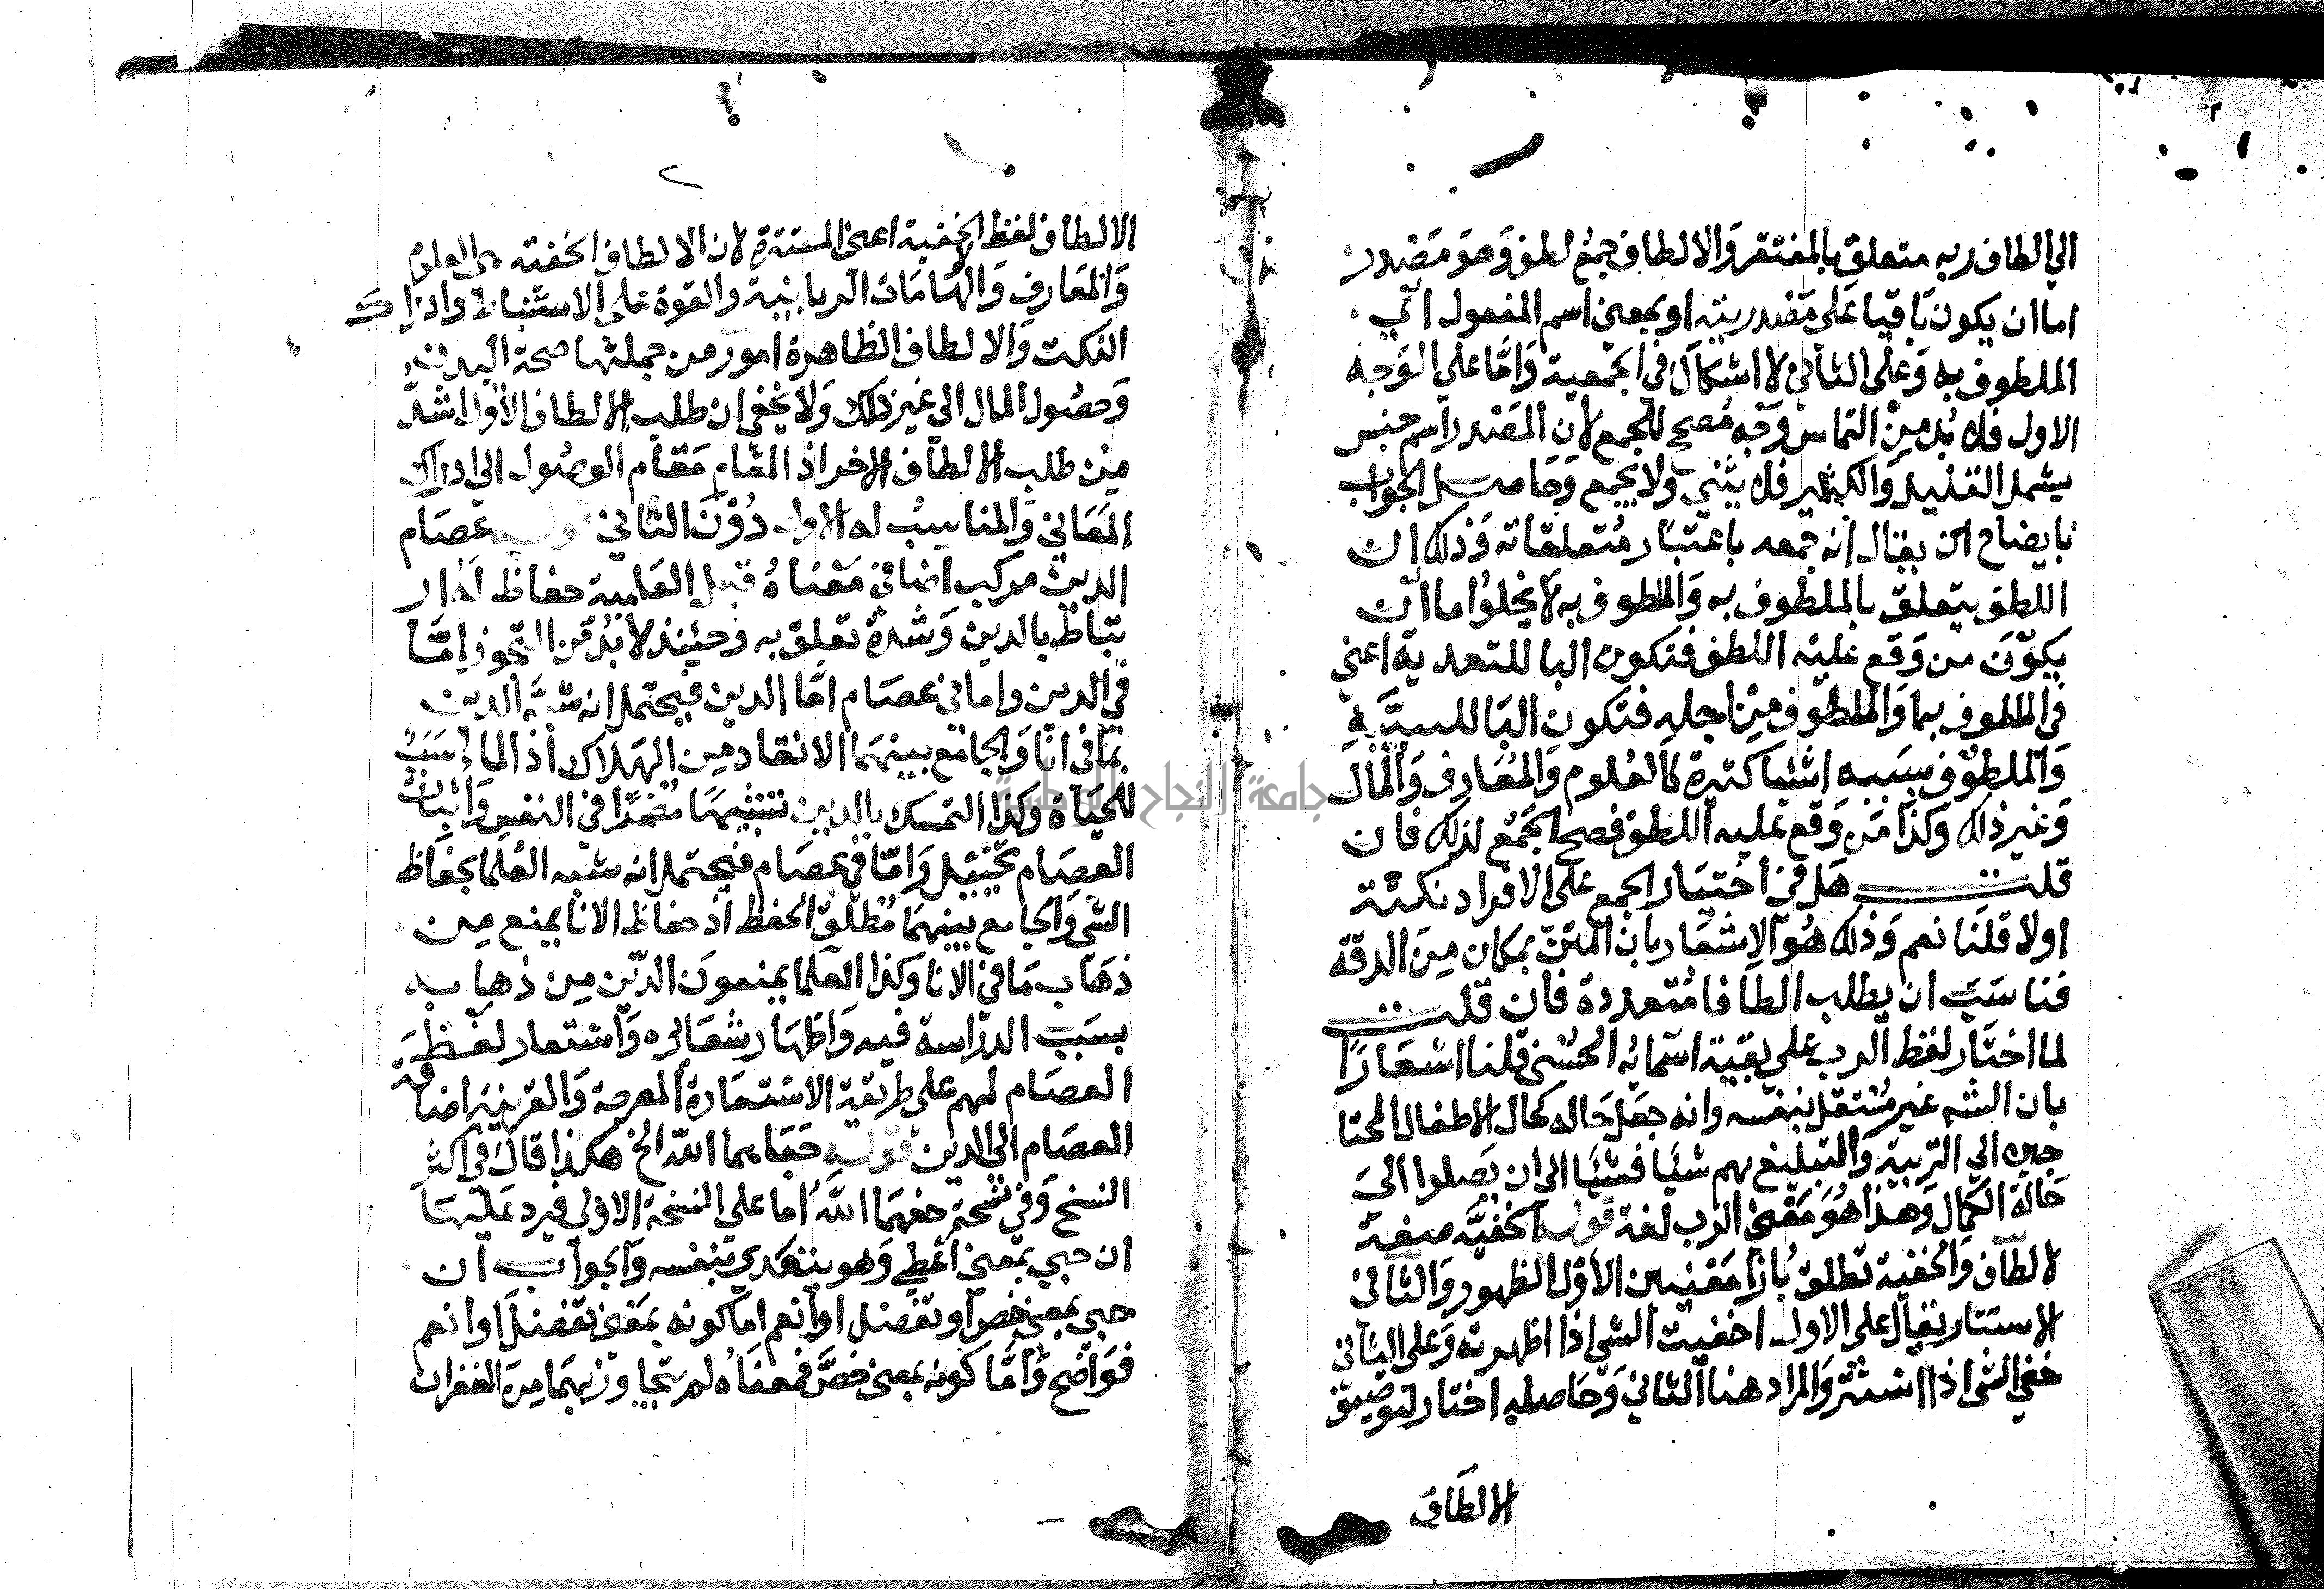 الي الطاف ربه متعلق بالمفتقر والالطاف جمع لطف وهو مصدر
اما ان يكون باقيا على مصدريته او بمعنى اسم المفعول اي
الملطوف به وعلى الثاني لا اشكال في الجمعية واما على الوجه
الاول فلا بد من التماس وجه مصحح للجمع لان المصدر اسم جنس
يشمل القليل والكثير فلا يثني ولا يجمع وحاصل الجواب
بايضاح ان يقال انه جمعه باعتبار متعلقاته وذلك ان
اللطف يتعلق بالملطوف به والملطوف به لا يخلوا اما ان
يكون من وقع عليه اللطف فتكون البا للتعدية اعني
في الملطوف بها والملطوف من اجله فتكون البا للسببية
والملطوف بسببه اشيا كثيرة كالعلوم والمعارف والمال
وغير ذلك وكذا من وقع عليه اللطف فصح الجمع لذلك فان
قلت هل في اختيار الجمع على الافراد نكتة
اولا قلنا نعم وذلك هو الاشعار بان المتن بمكان من الدقة
فناسب ان يطلب الطافا متعددة فان قلت
لما اختار لفظ الرب على بقية اسمائه الحسنى قلنا اشعارا
بان الشه غير مستقل بنفسه وانه جعل حاله كحال الاطفال المحتا
جين الي التربية والتبليغ بهم شيا فشيا الى ان يصلوا الى
حالة الكمال وهذا هو معنى الرب لغة قوله الخفية صفة
لالطاف والخفية تطلق بازا معنيين الاول الظهور والثاني
الاستتار يقال على الاول اخفيت الشي اذا اظهرته وعلى الثاني
خفي الشي اذا استتر والمراد هنا الثاني وحاصله اختار لتوصيف
الالطاف
٢
الالطاف لفظ الخفية اعني المستترة لان الالطاف الخفية هي العلوم
والمعارف والهامات الربانية والقوة على الاستنباط وادراك
النكت والالطاف الظاهرة امور من جملتها صحة البدن
وحصول المال الي غير ذلك ولا يخفى ان طلب الالطاف الاول اشد
من طلب الالطاف الاخر اذ المقام مقام الوصول الي ادراك
المعاني والمناسب له الاول دون الثاني قوله عصام
الدين مركب اضافي معناه قبل العلمية حفاظ اذ ار
تباط بالدين وشدة تعلق به وحينئذ لا بد من التجوز اما
في الدين واما في عصام اما الدين فيحتمل انه شبه الدين
بما في انا والجامع بينهما الانقاد من الهلاك اذ الما سبب
للحياة وكذا التمسك بالدين تشبيها مضمرا في النفس واثبات
العصام تخييل واما في عصام فيحتمل انه شبه العلما بحفاظ
الشي والجامع بينهما مطلق الحفظ اذ حفاظ الانا يمنع من
ذهاب ما في الانا وكذا العلما يمنعون الدين من ذهابه
بسبب الدراسة فيه واظهار شعائره واستعار لفظ
العصام لهم على طريقة الاستعارة المصرحة والقرينة اضافة
العصام الي الدين قوله حباهما الله الخ هكذا قال في اكثر
النسخ وفي نسخة حفهما الله اما على النسخة الاولى فيرد عليها
ان حبي بمعنى اعطي وهو يتعدي بنفسه والجواب ان
حبي بمعنى خص او تفضل او انعم اما كونه بمعنى تفضل او انعم
فواضح واما كونه بمعنى خص فمعناه لم يتجاوز بهما من الغفران
جامعة النجاح الوطنية